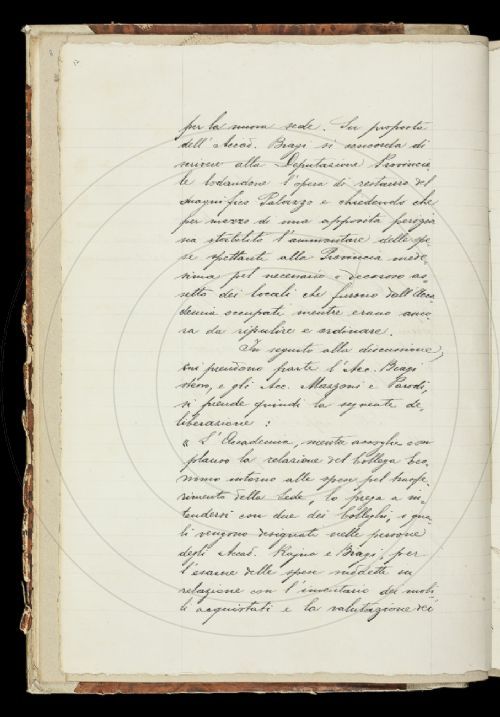 per la nuova sede. Su proposta
dell'Accad. Biagi si concorda di
scrivere alla Deputazione Provincia
le lodandone l'opera di restauro del
magnifico Palazzo e chiedendo che
per mezzo di una apposita perizia
sia stabilito l'ammontare delle spe
se spettante alla Provincia mede-
sima pel necessario e decoroso as-
setto dei locali che furono dall'Acca
demia occupati mentre erano anco
ra da ripulire e ordinare.
In seguito alla discussione,
cui prendono parte l'Acc. Biagi
stesso, e gli Acc. Mazzoni e Parodi,
si prende quindi la seguente de-
liberazione:
"L'Accademia, mentre accoglie con
plauso la relazione del Collega Eco-
nomo intorno alle spese pel trasfe-
rimento della Sede, lo prega a in-
tendersi con due dei Colleghi, i qua-
li vengono designati nelle persone
degli Accad. Rajna e Biagi, per
l'esame delle spese suddette in
relazione con l'inventario dei mobi-
li acquistati e la valutazione dei